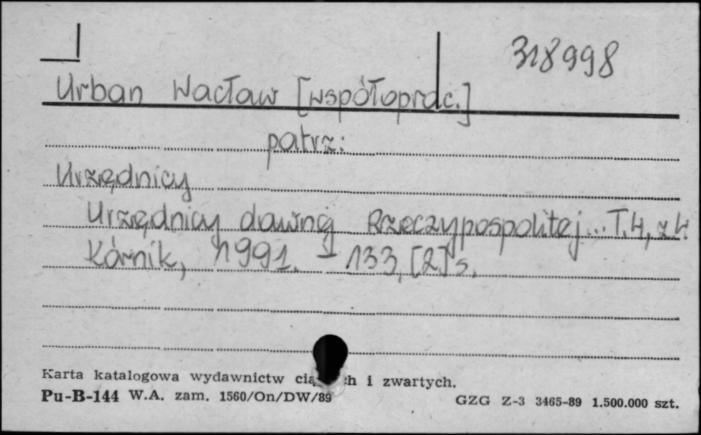 318998
Urban Wacław [współoprac.]
patrz:
Urzędnicy
Urzędnicy dawnej Rzeczypospolitej... T.4, z.4.
Kórnik, 1991. - 133, [2] s.
Karta katalogowa wydawnictw cią h i zwartych.
Pu-B-144 W.A. zam. 1560/On/DW/89 GZG Z-3 3465-89 1.500.000 szt.